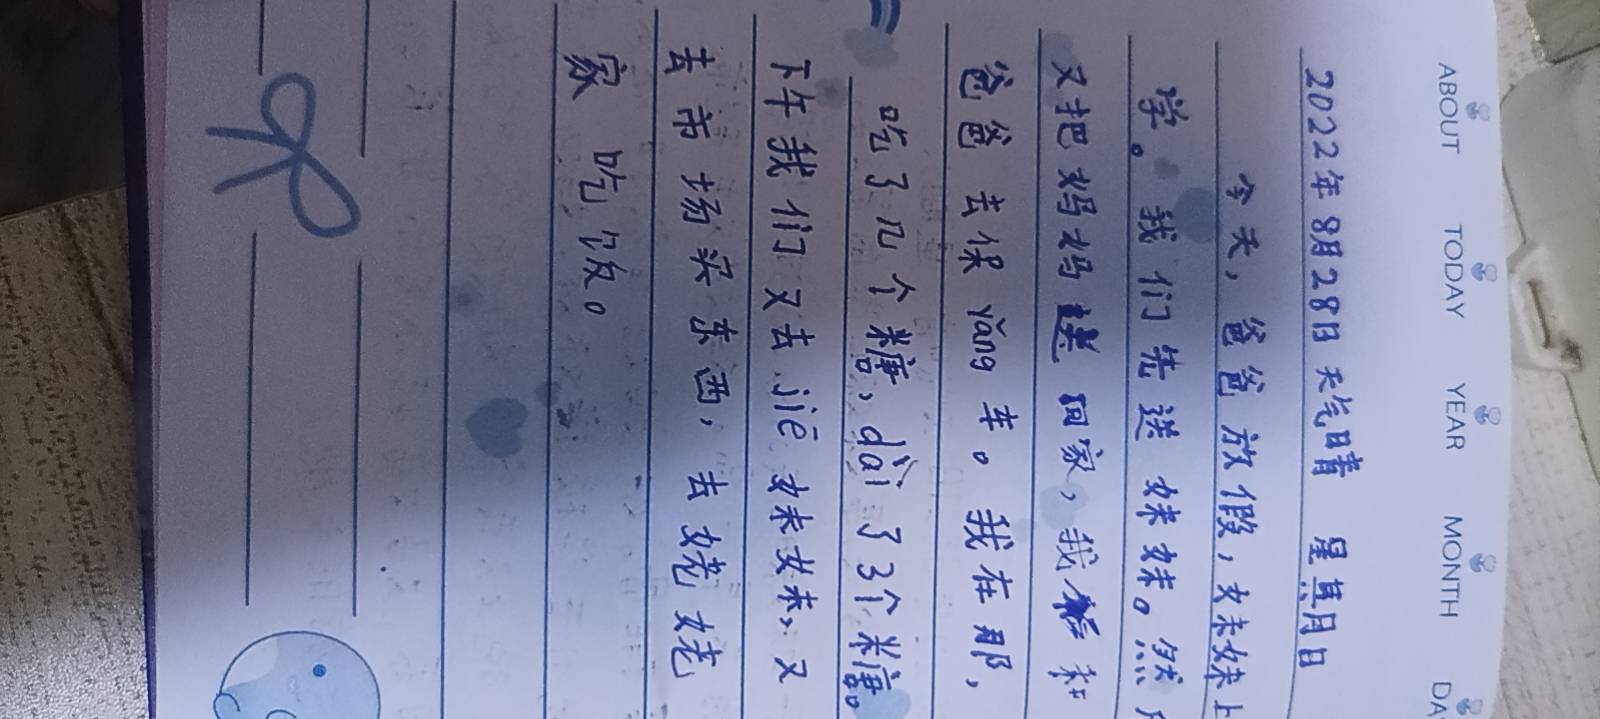 ABOUT TODAY YEAR MONTH DA
2022年8月28日 天气晴 星期日
今天，爸爸放假，妹妹上
学。我们先送妹妹。然
又把妈妈送回家，我和
爸爸去保yǎng车。我在那，
吃了几个糖，dài了3个糖。
下午我们又去jiē妹妹，又
去市场买东西，去姥姥
家吃饭。